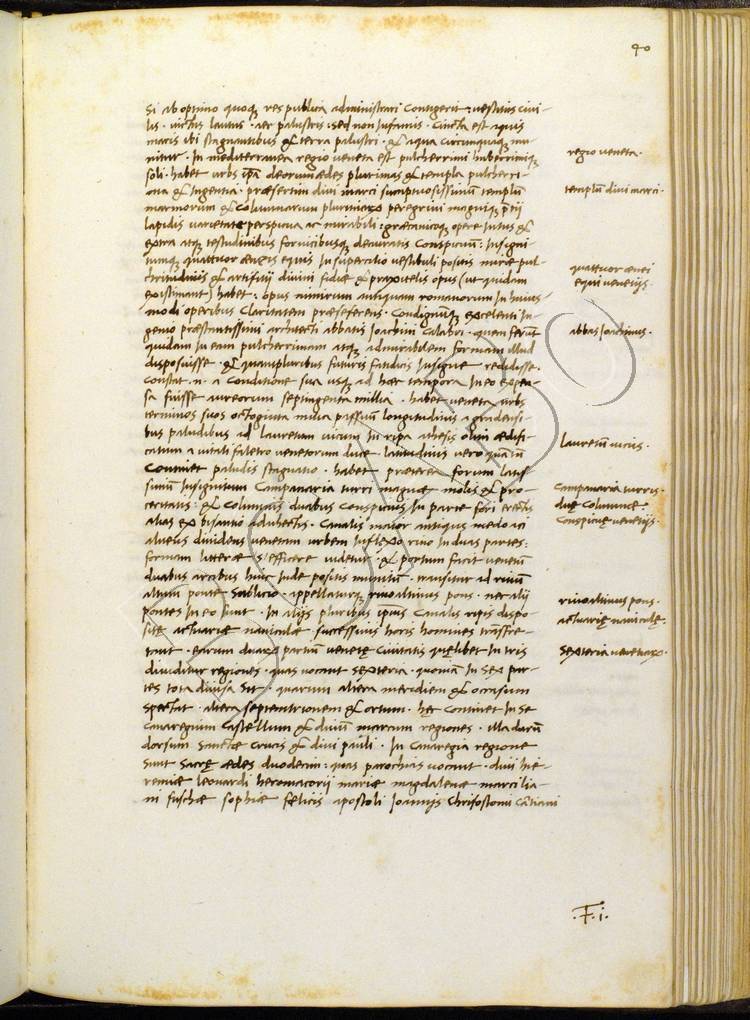 40
Si ab optimo quoq; res publica administrari contigerit: uestitus ciui-
lis. uictus lautus. aer palustris sed non infamis. Cincta est aquis
maris ibi stagnantibus & terra palustri. & aqua circunquaq; mu-
nitur. In mediterranea regio ueneta est pulcherrimi huberrimiq;
soli. habet urbs ipa deorum ædes plurimas & templa pulcherri-
ma & ingentia. præsertim diui marci sumptuosissimum templū
marmorum & columnarum plurimarū peregrini magniq; prij
lapidis uarietate perspicua ac mirabili: græcanicoq; opere intus &
extra atq; testudinibus fornicibusq; deauratis conspicuū: Insigni-
tumq; quattuor æneis equis in supercilio uestibuli positis miræ pul-
chritudinis & artifitij diuini fidiæ & praxitelis opus (ut quidam
existimant) habet: opus nimirum antiquam romanorum in huius-
modi operibus claritatem præseferens. Condignūq; excelenti in-
genio præstantissimi architecti abbatis Joachini calabri. quem ferūt
quidam in eam pulcherrimam atq; admirabilem formam illud
disposuisse. & quampluribus futuris fatidicis insigne reddidisse.
constat .n. a conditione sua usq; ad hæc tempora in eo expen-
sa fuisse aureorum septingenta millia. habet ueneta urbs
terminos suos octoginta milia passuū longitudinis a gradensi-
bus paludibus ad lauretum uicum in ripa athesis olim ædifi-
catum a uitali faletro uenetorum duce. latitudinis uero quātū
continet paludis stagnatio. habet præterea forum latis-
simum insignitum campanaria turri magnæ molis & pro-
ceritatis: & columnis duabus conspicuis in parte fori erectis
alias ex bisantio aduhectis. Canalis maior antiquus medo aci
alueus diuidens uenetam urbem inflexo riuo in duas partes:
formam litteræ s efficere uidetur. & portum facit uenetū
duabus arcibus hinc inde positis munitū. transitur ad riuum
altum ponte sublicio. appellaturq; riuoaltinus pons. nec alij
pontes in eo sunt. In alijs pluribus ipius canalis ripis dispo-
sitę actuariæ nauiculæ successiuis horis homines trāsfre-
tant. earum duarū partiū uenetę ciuitatis quęlibet in tris
diuiditur regiones. quas uocant sexteria. quoniā in sex par-
tes tota diuisa sit. quarum altera meridiem & occasum
spectat. altera septemtrionem & ortum. hęc continet in se
canaregium castellum & diuū marcum regiones. illa darū
dorsum sanctæ crucis & diui pauli. In canaregia regione
sunt sacrę ædes duodecim: quas parochias uocant. diui hie-
remiæ leonardi hermacorij mariæ magdalenæ marcilia-
ni fuschæ sophiæ fœlicis apostoli Joannis Chrisostomi cātiani
regio ueneta.
templū diui marci.
quattuor ænei
equi uenetijs.
abbas Joachinus.
lauretū uicus.
Campanaria turris.
duę columnæ
conspicuę uenetijs.
riuoaltinus pons.
actuarię nauiculę.
Sexteria uenetiarū.
.F.i.